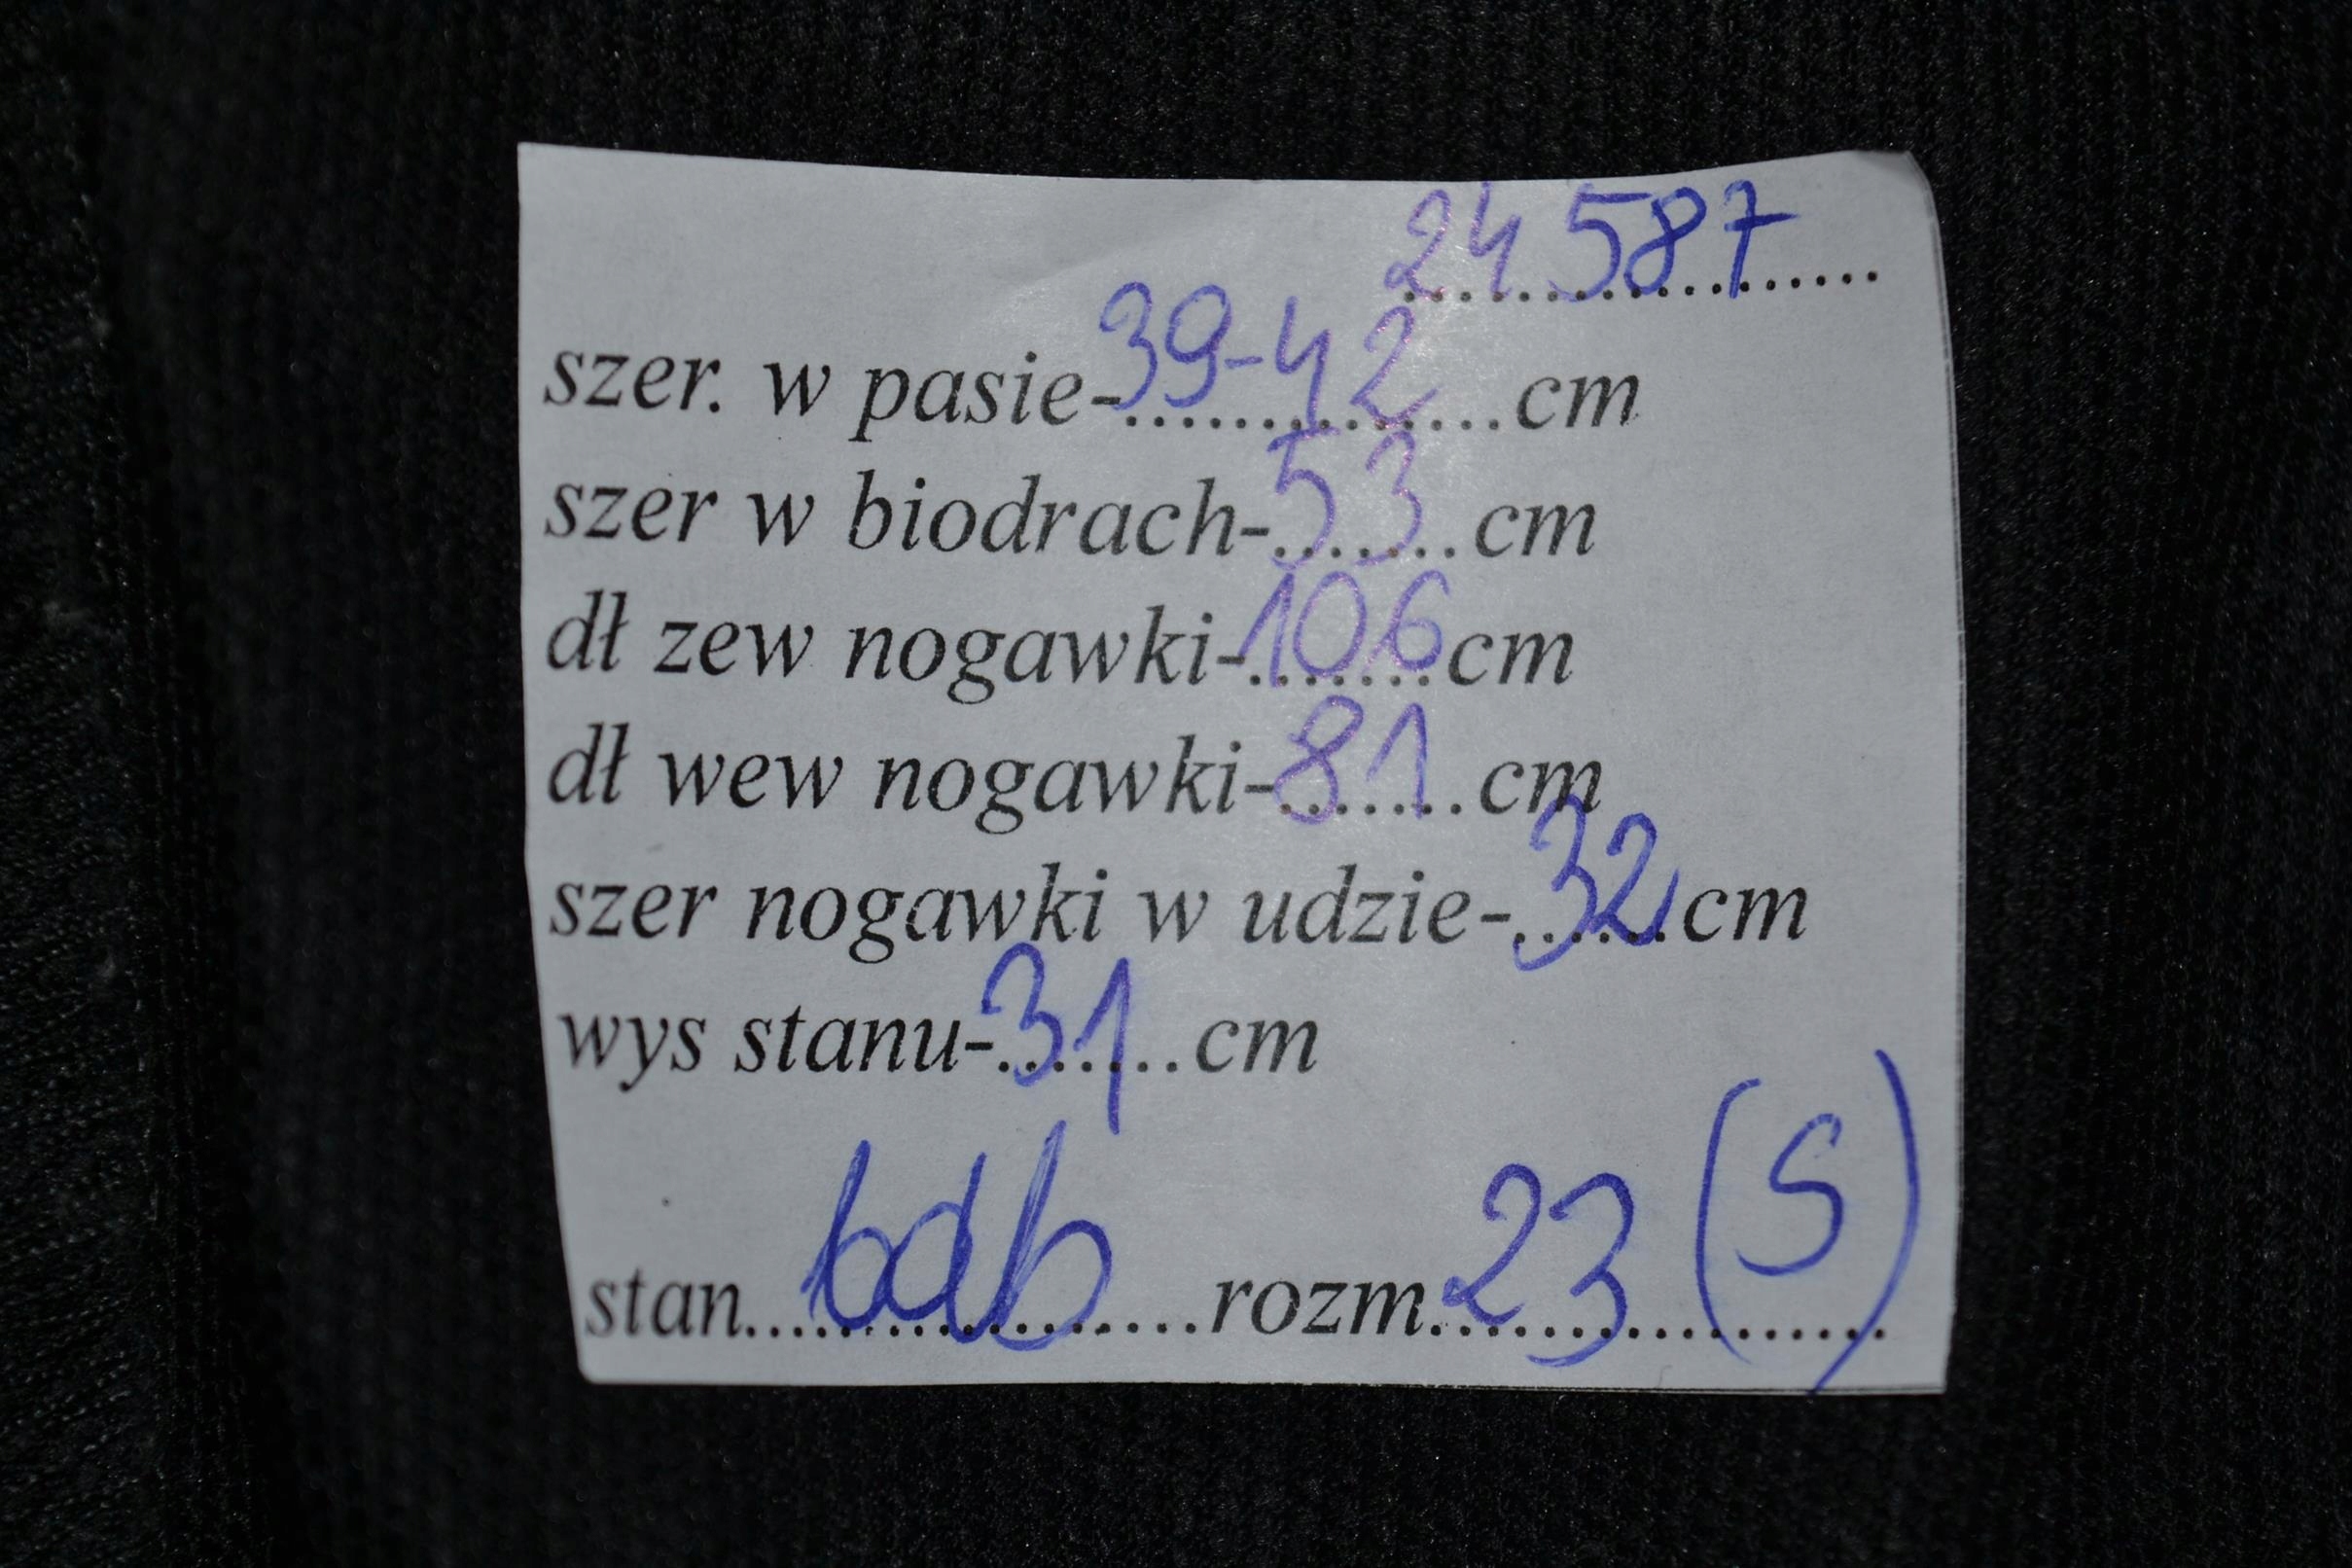 24 587
szer. w pasie-39-42cm
szer w biodrach-53cm
dł zew nogawki-106cm
dł wew nogawki-81cm
szer nogawki w udzie-32cm
wys stanu-31cm
stan bdb rozm. 23 (S)